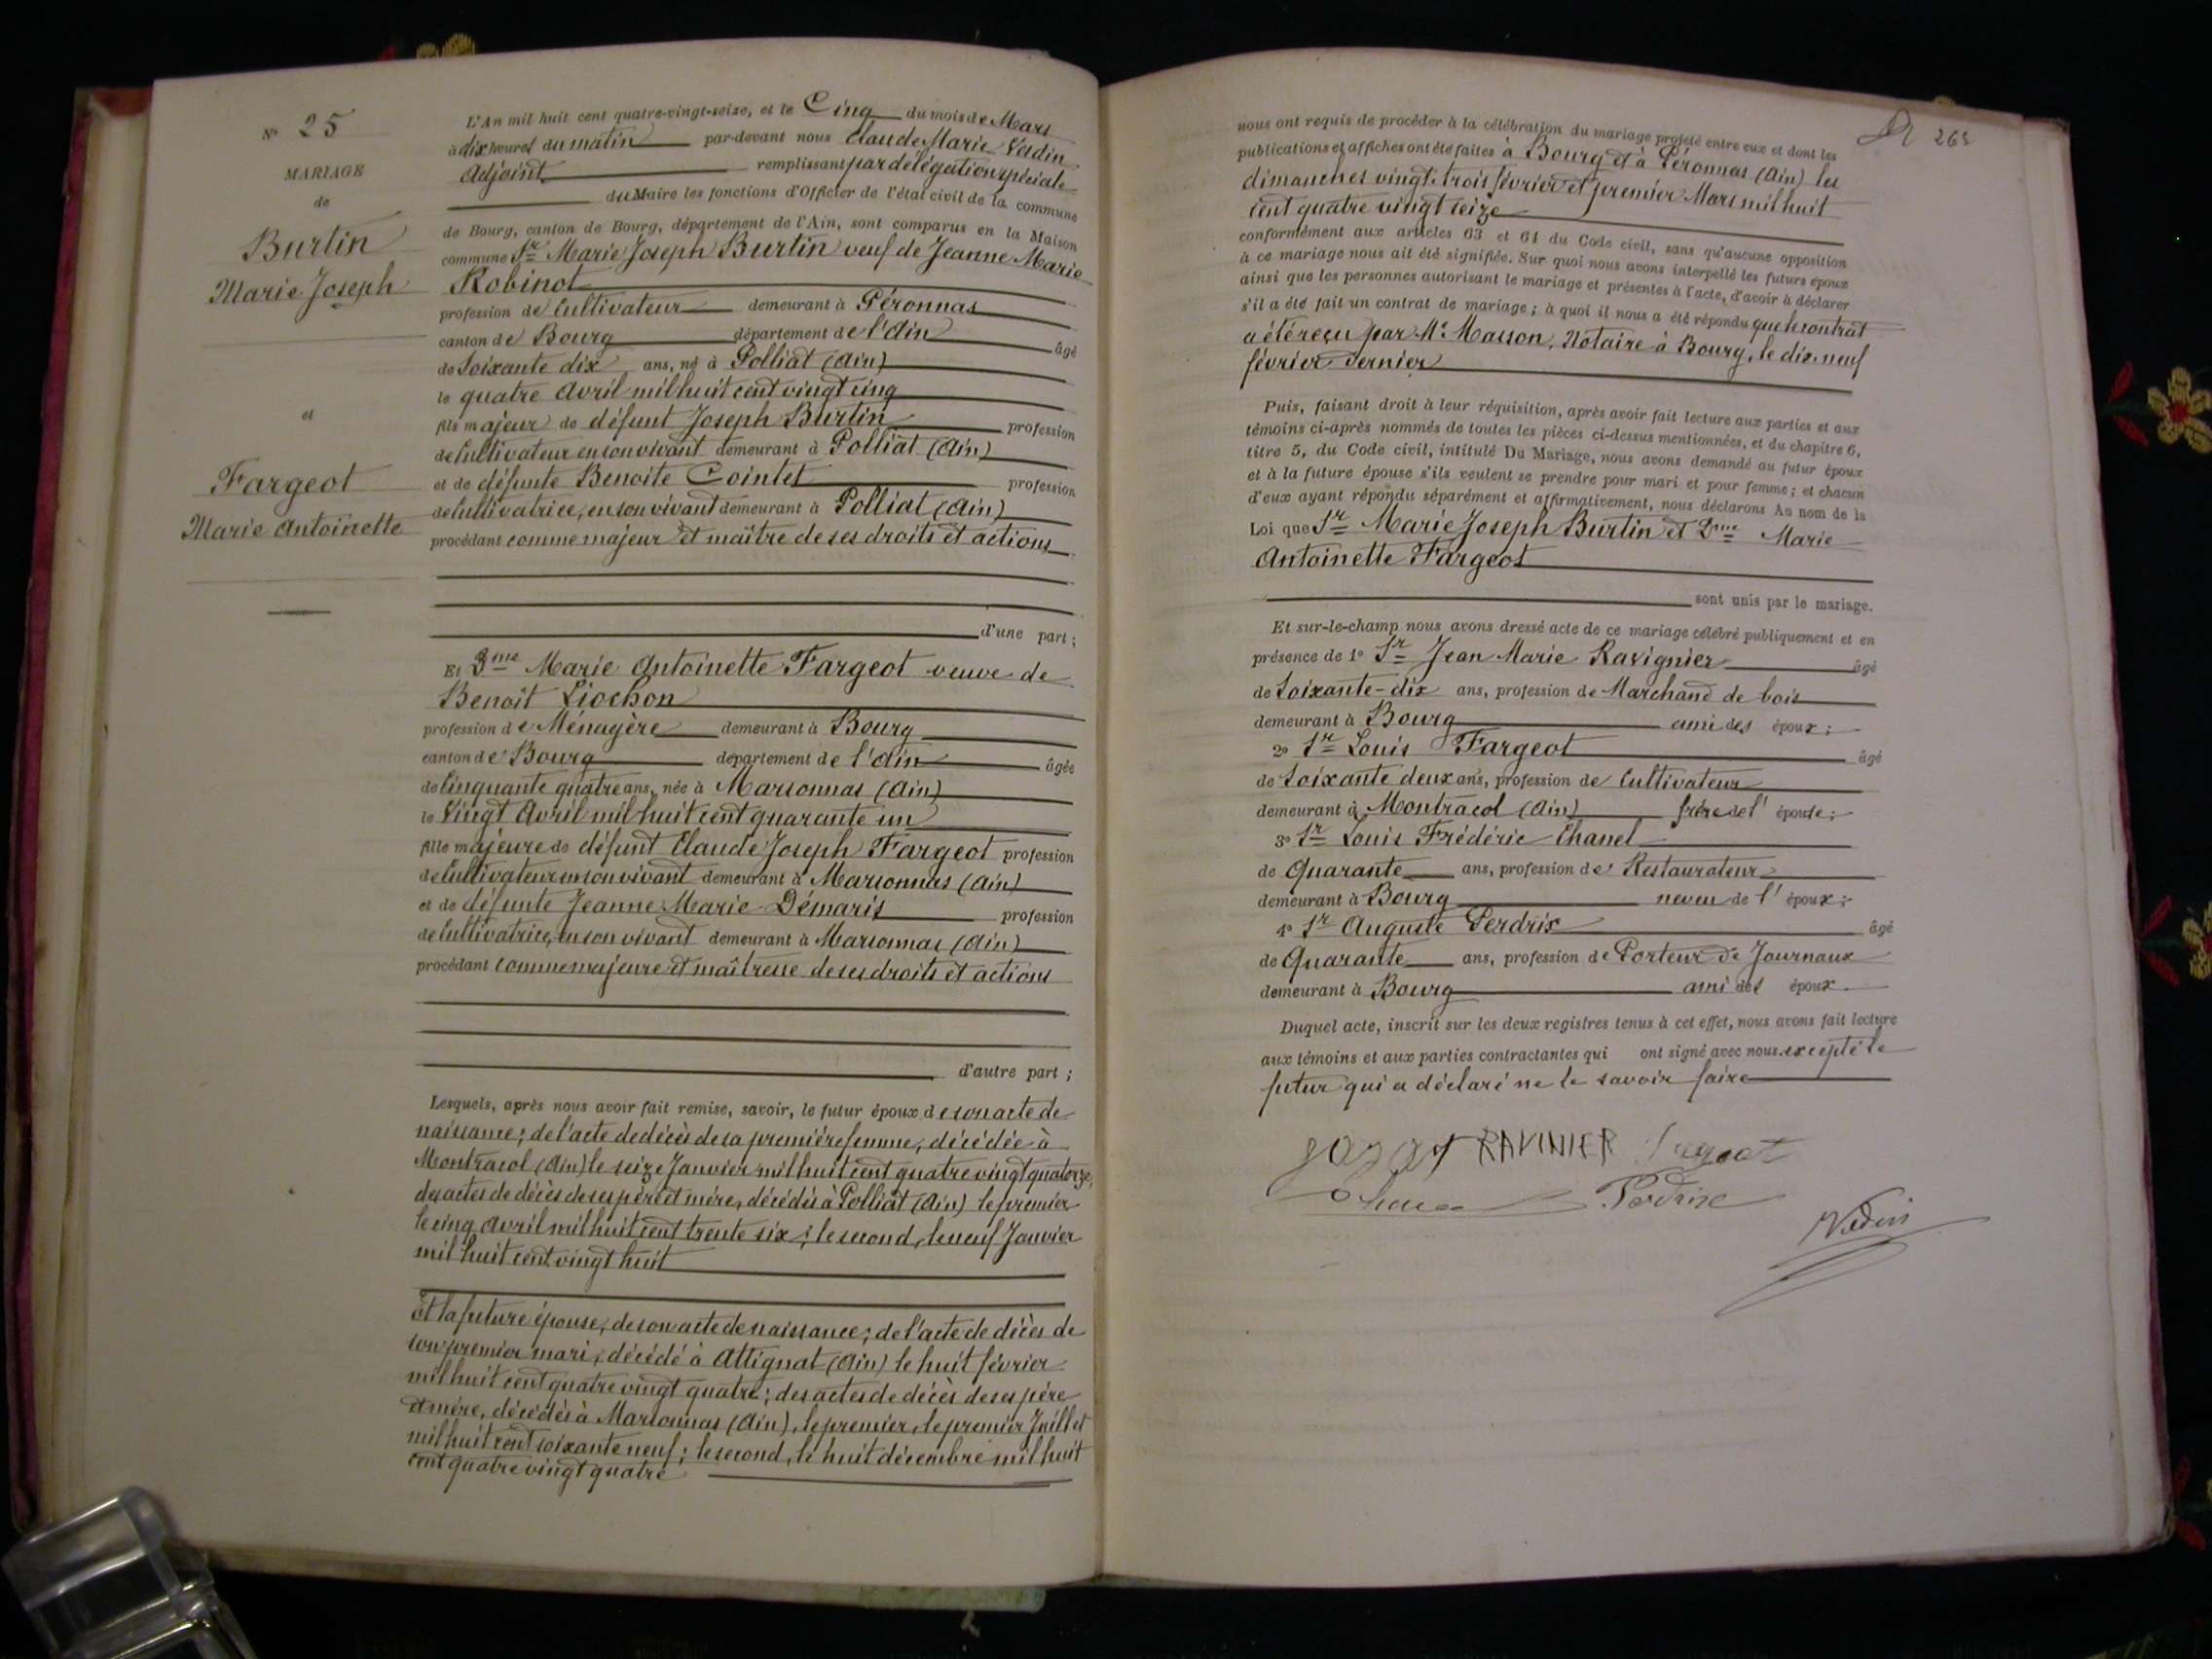 N° 25
MARIAGE
de
Burtin
Marie Joseph
et
Fargeot
Marie Antoinette
L'An mil huit cent quatre-vingt-seize, et le Cinq du mois de Mars
à dix heures du matin par-devant nous Claude Marie Verdin
Adjoint remplissant par délégation spéciale
du Maire les fonctions d'Officier de l'état civil de la commune
de Bourg, canton de Bourg, département de l'Ain, sont comparus en la Maison
commune Sr Marie Joseph Burtin veuf de Jeanne Marie
Robinot
profession de Cultivateur demeurant à Péronnas
canton de Bourg département de l'Ain âgé
de Soixante dix ans, né à Polliat (Ain)
le quatre Avril mil huit cent vingt cinq
fils majeur de défunt Joseph Burtin profession
de Cultivateur en son vivant demeurant à Polliat (Ain)
et de défunte Benoite Cointet profession
de Cultivatrice, en son vivant demeurant à Polliat (Ain)
procédant comme majeur et maître de ses droits et actions
d'une part ;
Et Dme Marie Antoinette Fargeot veuve de
Benoît Liochon
profession de Ménagère demeurant à Bourg
canton de Bourg département de l'Ain âgée
de Cinquante quatre ans, née à Marsonnas (Ain)
le Vingt Avril mil huit cent quarante un
fille majeure de défunt Claude Joseph Fargeot profession
de Cultivateur en son vivant demeurant à Marsonnas (Ain)
et de défunte Jeanne Marie Démaris profession
de Cultivatrice, en son vivant demeurant à Marsonnas (Ain)
procédant comme majeure et maîtresse de ses droits et actions
d'autre part ;
Lesquels, après nous avoir fait remise, savoir, le futur époux de son acte de
naissance ; de l'acte de décès de sa première femme, décédée à
Montracol (Ain) le seize Janvier mil huit cent quatre vingt quatorze,
des actes de décès de ses père et mère, décédés à Polliat (Ain) le premier
le cinq Avril mil huit cent trente six ; le second, le neuf Janvier
mil huit cent vingt huit
Et la future épouse, de son acte de naissance ; de l'acte de décès de
son premier mari, décédé à Attignat (Ain) le huit février
mil huit cent quatre vingt quatre ; des actes de décès de ses père
et mère, décédés à Marsonnas (Ain), le premier, le premier Juillet
mil huit cent soixante neuf ; le second, le huit décembre mil huit
cent quatre vingt quatre
265
nous ont requis de procéder à la célébration du mariage projeté entre eux et dont les
publications et affiches ont été faites à Bourg et à Péronnas (Ain) les
dimanches vingt-trois février et premier Mars mil huit
cent quatre vingt seize
conformément aux articles 63 et 64 du Code civil, sans qu'aucune opposition
à ce mariage nous ait été signifiée. Sur quoi nous avons interpellé les futurs époux
ainsi que les personnes autorisant le mariage et présentes à l'acte, d'avoir à déclarer
s'il a été fait un contrat de mariage ; à quoi il nous a été répondu que le contrat
a été reçu par Me Masson, Notaire à Bourg, le dix-neuf
février dernier
Puis, faisant droit à leur réquisition, après avoir fait lecture aux parties et aux
témoins ci-après nommés de toutes les pièces ci-dessus mentionnées, et du chapitre 6,
titre 5, du Code civil, intitulé Du Mariage, nous avons demandé au futur époux
et à la future épouse s'ils veulent se prendre pour mari et pour femme ; et chacun
d'eux ayant répondu séparément et affirmativement, nous déclarons Au nom de la
Loi que Sr Marie Joseph Burtin et Dme Marie
Antoinette Fargeot
sont unis par le mariage.
Et sur-le-champ nous avons dressé acte de ce mariage célébré publiquement et en
présence de 1° Sr Jean Marie Ravignier âgé
de Soixante-dix ans, profession de Marchand de bois
demeurant à Bourg ami des époux ;
2° Sr Louis Fargeot âgé
de Soixante deux ans, profession de Cultivateur
demeurant à Montracol (Ain) frère de l'épouse ;
3° Sr Louis Frédéric Chanel
de Quarante ans, profession de Restaurateur
demeurant à Bourg neveu de l'époux ;
4° Sr Auguste Perdrix âgé
de Quarante ans, profession de Porteur de Journaux
demeurant à Bourg ami des époux
Duquel acte, inscrit sur les deux registres tenus à cet effet, nous avons fait lecture
aux témoins et aux parties contractantes qui ont signé avec nous excepté le
futur qui a déclaré ne le savoir faire
RAVINIER Fargeot
Perdrix